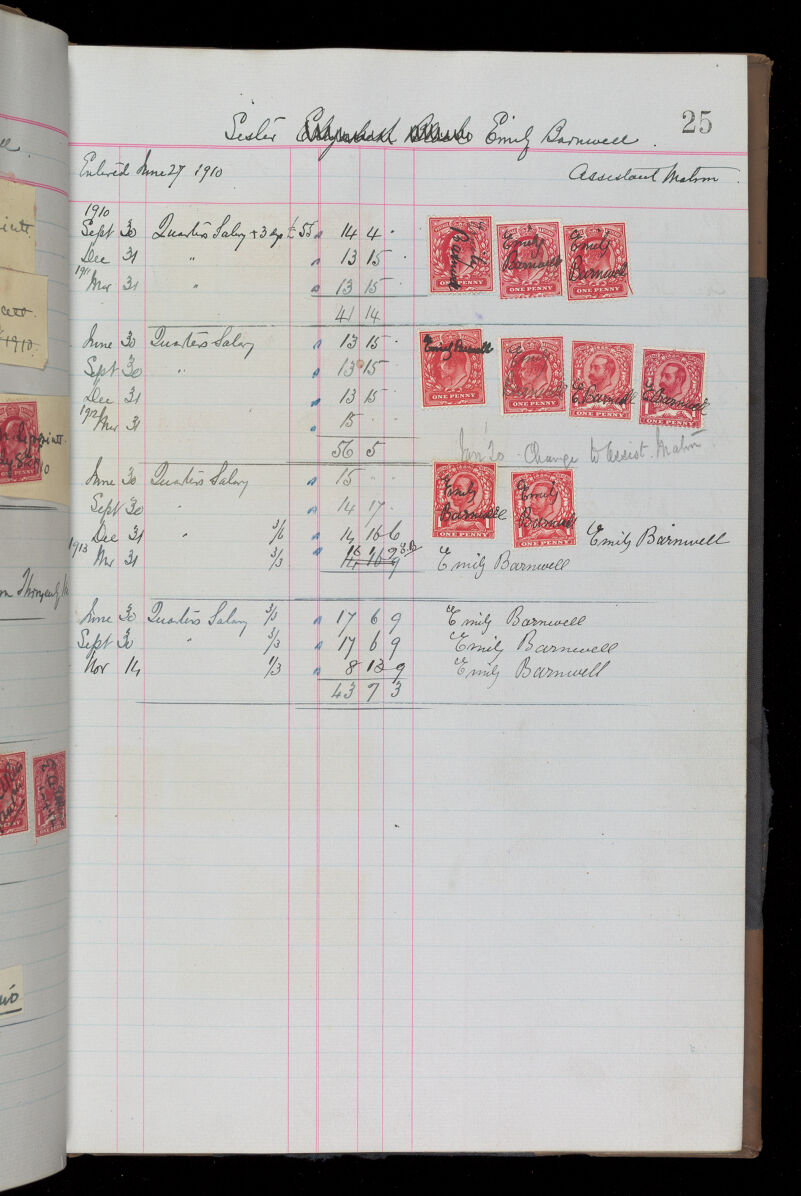 25
Sister Emily Barnwell
Entered June 27 1910 Assistant Matron
1910
Sept 30 Quarters Salary + 3 dys £55 14 4 ·
Dec 31 " 13 15 ·
1911
Mar 31 " 13 15 ·
41 14
Emily Barnwell
Emily Barnwell
Emily Barnwell
ONE PENNY
ONE PENNY
ONE PENNY
June 30 Quarters Salary 13 15
Sept 30 " 13 15
Dec 31 13 15
1912
Mar 31 15 · ·
56 5
Emily Barnwell
Emily Barnwell
E Barnwell
E Barnwell
ONE PENNY
ONE PENNY
ONE PENNY
ONE PENNY
Jan 20 - Change to Assist. Matron
June 30 Quarters Salary 15 · ·
Sept 30 " 14 17 ·
Dec 31 " 3/6 14 16 6 Emily Barnwell
1913
Mar 31 3/3 16 1 9 E.B. Emily Barnwell
14 16 9
Emily Barnwell
Emily Barnwell
ONE PENNY
ONE PENNY
June 30 Quarters Salary 3/3 17 6 9 Emily Barnwell
Sept 30 " 3/3 17 6 9 Emily Barnwell
Nov 14 1/3 8 13 9 Emily Barnwell
43 7 3